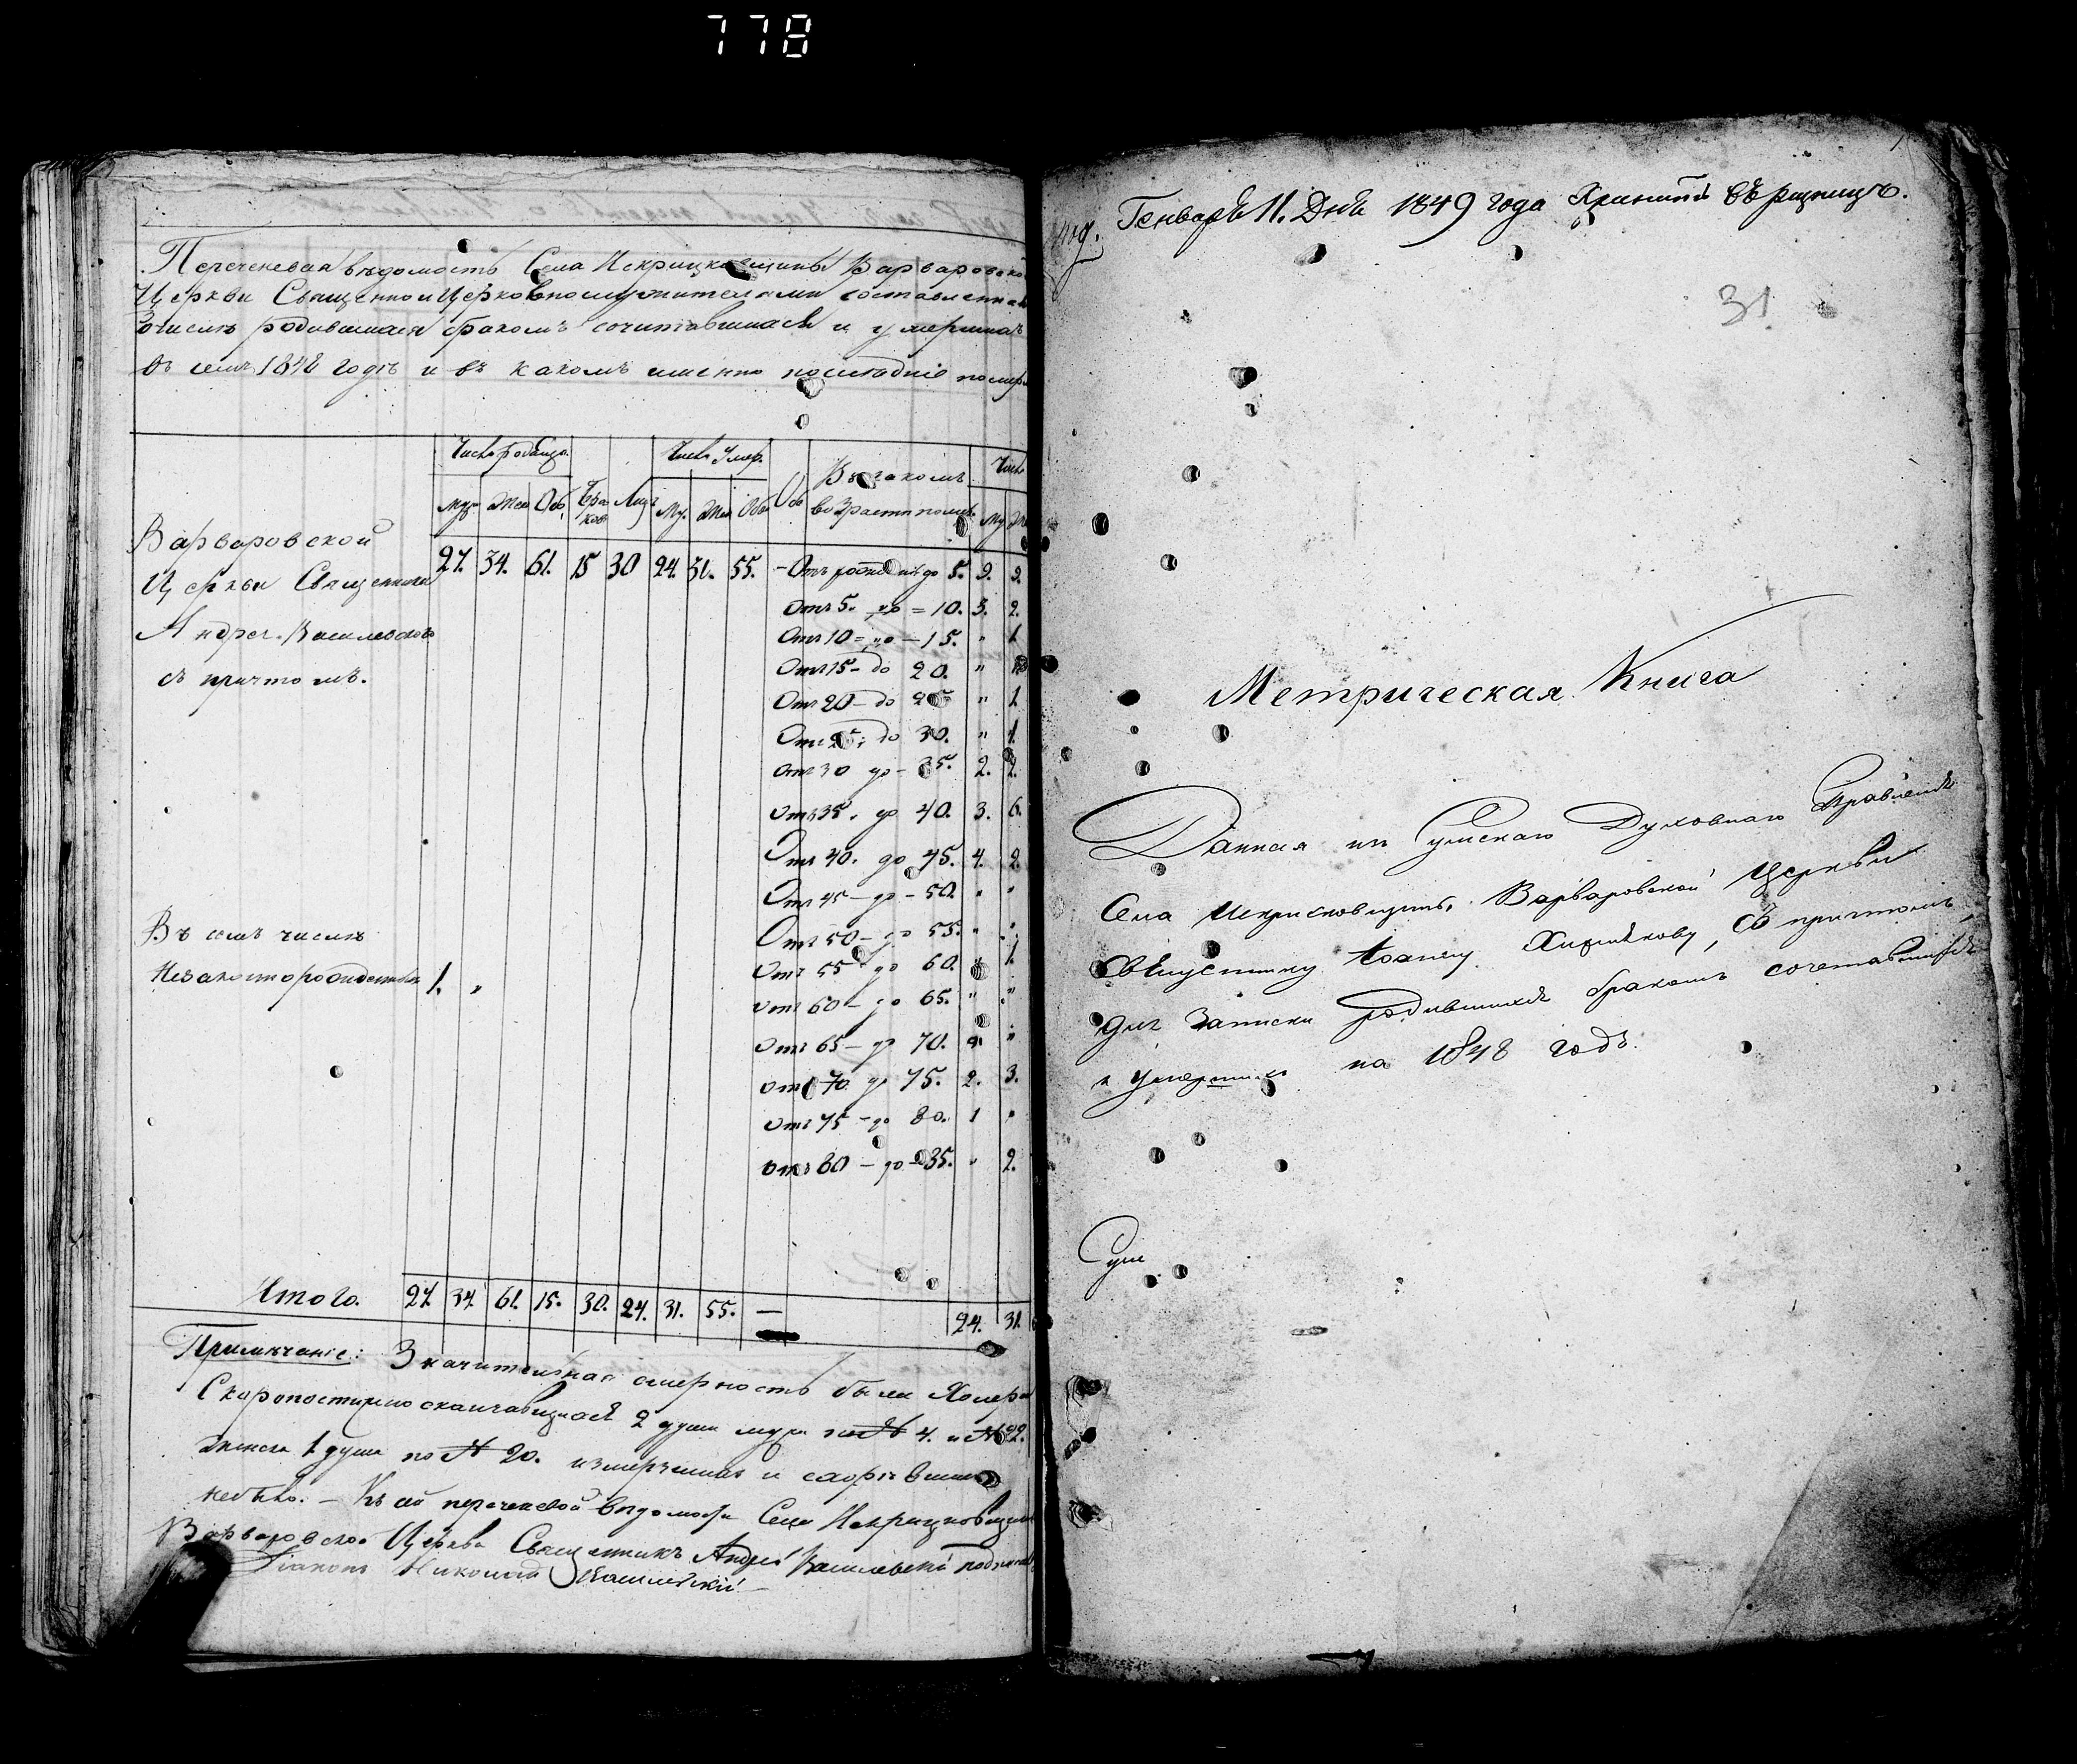 778
Перечневая вѣдомость Села Искрицковщины Варваровско
Церкви Священноицерковнослужителями составленная
Очислѣ родившихся бракомъ сочитавшихся и умершихъ
въ семъ 1848 годѣ и въ какомъ именно последніе помер
Число родивш.
Число Умер.
Въ какомъ
Число
Муж Жен Об. Бра ковъ Лиц Му. Жен Обо Об возрасти помер. Му Же
Варваровской
Церкви Священника
Андрея Василевскаго
съ причтомъ.
27. 34. 61. 15 30 24. 31. 55. - Отъ рожденія до 5. 9. 9.
Отъ 5. до = 10. 3. 2.
Отъ 10 = до - 15. " 1
Отъ 15 - до 20. "
Отъ 20 - до 25 " 1
Отъ 25; до 30. " 1.
отъ 30 до - 35. 2. 2.
отъ 35. до 40. 3. 6.
Отъ 40. до 45. 4. 2.
Отъ 45 - до - 50. " "
Отъ 50 - до 55. " "
Отъ 55 - до 60. " 1.
отъ 60 - до 65. " "
отъ 65 - до 70. "
отъ 70 до 75. 2. 3.
отъ 75 - до 80. 1 "
отъ 80 - до - 85. " 2.
Въ семъ числѣ
Незаконнорожденныхъ 1. "
Итого. 27. 34. 61. 15. 30. 24. 31. 55. — 24. 31.
Примѣчаніе: Значительная смерность была Холера
Скоропостижно скончавшихся 2 души муж по № 4. и № 22.
женска 1 душа по № 20. измерзшихъ и сгорѣвшихъ
небыло. - Къ сей перечневой вѣдомости Села Искрицковщины
Варваровской Церкви Священникъ Андрей Василевскій подписа
Діаконъ Николай Василевскій
Генваря 11. Дня 1849 года Хранить въ ризницѣ.
31
Метрическая Книга
Данная изъ Сумскаго Духовнаго Правленія
Села Искрисковщины, Варваровской Церкви
Священнику Іоанну Хижнякову, съ причтомъ
для Записки родившихся бракомъ сочетавшихся
и умершихъ на 1848 годъ.
Сум